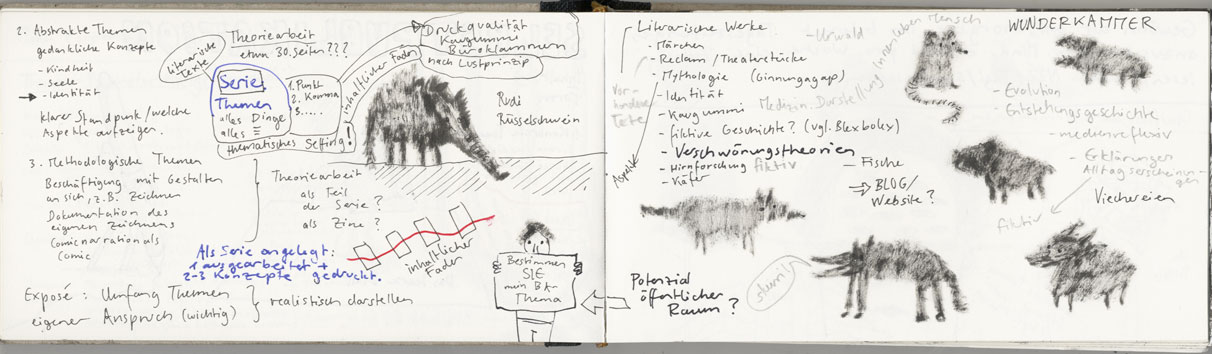 2. Abstrakte Themen
gedankliche Konzepte
- Kindheit
- Seele
- Identität
klarer Standpunk/welche
Aspekte aufzeigen.
3. Methodologische Themen
Beschäftigung mit Gestalten
an sich, z.B. Zeichnen
Dokumentation des
eigenen Zeichnens
Comicnarration als
Comic
Literarische
Texte
Theoriearbeit
etwa 30.Seiten???
Serie
Themen
alles Dinge
alles
thematisches Setting!
1. Punkt
2. Komma
3.....
inhaltlicher Faden
Druckqualität
Kaugummi
Büroklammern
nach Lustprinzip
Rudi
Rüsselschwein
Theoriearbeit
als Teil
der Serie?
als Zine?
Als Serie angelegt:
1 ausgearbeitet +
2-3 Konzepte gedruckt.
inhaltlicher
Faden
Exposé: Umfang Themen
eigener Anspruch (wichtig)
realistisch darstellen
Bestimmen
SIE
mein BA-
Thema
Literarische Werke
- Märchen
- Reclam / Theaterstücke
- Mythologie (Ginnungagap)
- Identität
- Kaugummi
- fiktive Geschichte? (vgl. Blexbolex)
- Verschwörungstheorien
- Hirnforschung fiktiv
- Käfer
Aspekte
Vor-
handene
Texte
- Urwald
Medizin. Darstellung Innenleben Mensch
- Fische
BLOG/
Website?
Potenzial
öffentlicher
Raum?
stumm!
WUNDERKAMMER
- Evolution
- Entstehungsgeschichte
- medienreflexiv
- Erklärungen
Alltagserscheinun-
gen
Viechereien
fiktiv